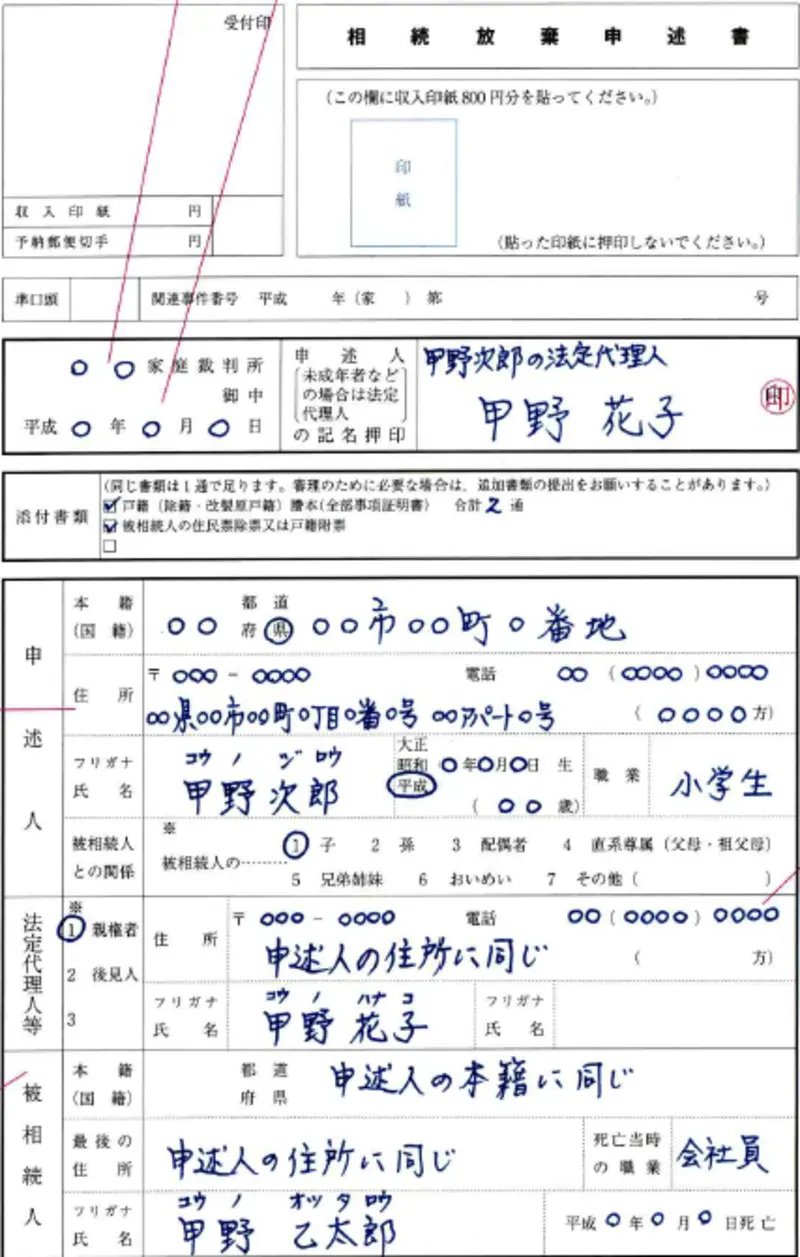 受付印
相続放棄申述書
(この欄に収入印紙800円分を貼ってください。)
印
紙
収入印紙 円
予納郵便切手 円
(貼った印紙に押印しないでください。)
準口頭 関連事件番号 平成 年(家 )第 号
○○家庭裁判所
御中
平成○年○月○日
申述人
未成年者など
の場合は法定
代理人
の記名押印
甲野次郎の法定代理人
甲野 花子
印
添付書類
(同じ書類は1通で足ります。審理のために必要な場合は、追加書類の提出をお願いすることがあります。)
☑ 戸籍(除籍・改製原戸籍)謄本(全部事項証明書) 合計2通
☑ 被相続人の住民票除票又は戸籍附票
□
申述人
本籍
(国籍)
都道
府県
○○ ○○市○○町○番地
住所
〒○○○-○○○○ 電話 ○○(○○○○)○○○○
○○県○○市○○町○丁目○番○号 ○○アパート○号 (○○○○方)
フリガナ
氏名
コウノ ジロウ
甲野 次郎
大正
昭和
平成
○年○月○日生
(○○歳)
職業
小学生
被相続人
との関係
※
被相続人の………
1 子 2 孫 3 配偶者 4 直系尊属(父母・祖父母)
5 兄弟姉妹 6 おいめい 7 その他( )
法定代理人等
※
1 親権者
2 後見人
3
住所
〒○○○-○○○○ 電話 ○○(○○○○)○○○○
申述人の住所に同じ ( 方)
フリガナ
氏名
コウノ ハナコ
甲野 花子
フリガナ
氏名
被相続人
本籍
(国籍)
都道
府県
申述人の本籍に同じ
最後の
住所
申述人の住所に同じ
死亡当時
の職業
会社員
フリガナ
氏名
コウノ オツタロウ
甲野 乙太郎
平成○年○月○日死亡